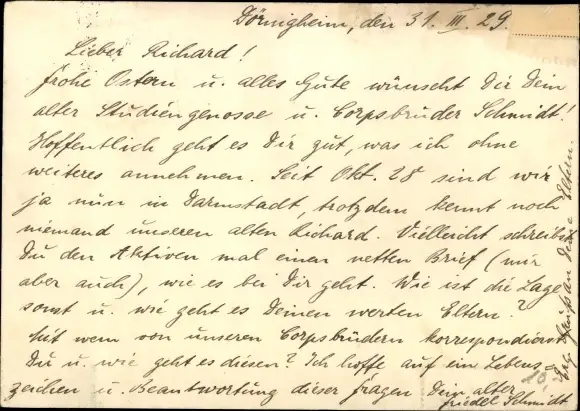 Dörnigheim, den 31. III. 29.
Lieber Richard!
Frohe Ostern u. alles Gute wünscht Dir Dein
alter Studiengenosse u. Corpsbruder Schmidt!
Hoffentlich geht es Dir gut, was ich ohne
weiteres annehmen. Seit Okt. 28 sind wir
ja nun in Darmstadt, trotzdem kennt noch
niemand unseren alten Richard. Vielleicht schreibst
Du den Aktiven mal einen netten Brief (mir
aber auch), wie es bei Dir geht. Wie ist die Lage
sonst u. wie geht es Deinen werten Eltern?
Mit wem von unseren Corpsbrüdern korrespondierst
Du u. wie geht es diesen? Ich hoffe auf ein Lebens-
zeichen u. Beantwortung dieser Fragen Dein alter
Friedel Schmidt
Gruß an Deine Eltern.
10.-